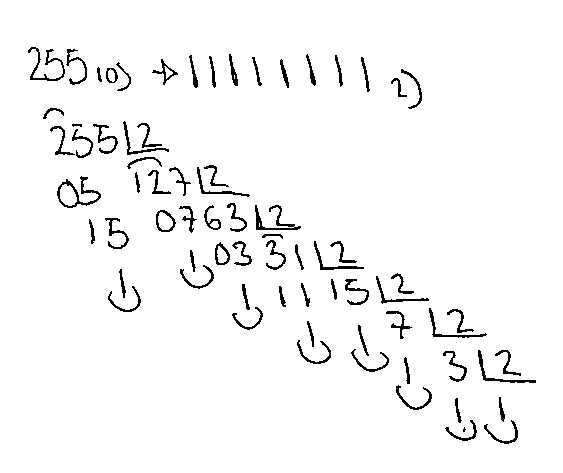 255 10) → 11111111 2)
255 2
05 127 2
15 07 63 2
1 1 03 31 2
1 11 15 2
1 1 7 2
1 3 2
1 1